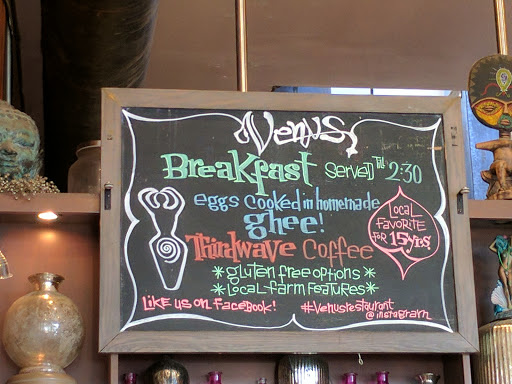 Venus
Breakfast served 'til 2:30
eggs cooked in homemade
ghee!
Thirdwave Coffee
*gluten free options*
*local farm features*
Like us on Facebook!
#venusrestaurant
@instagram
Local
Favorite
for 15 yrs!